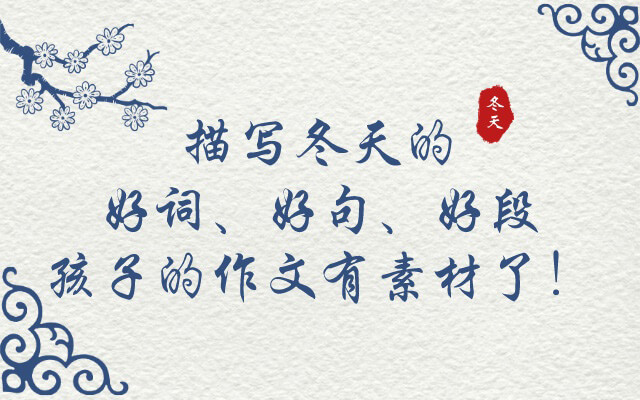 冬天
描写冬天的
好词、好句、好段
孩子的作文有素材了!